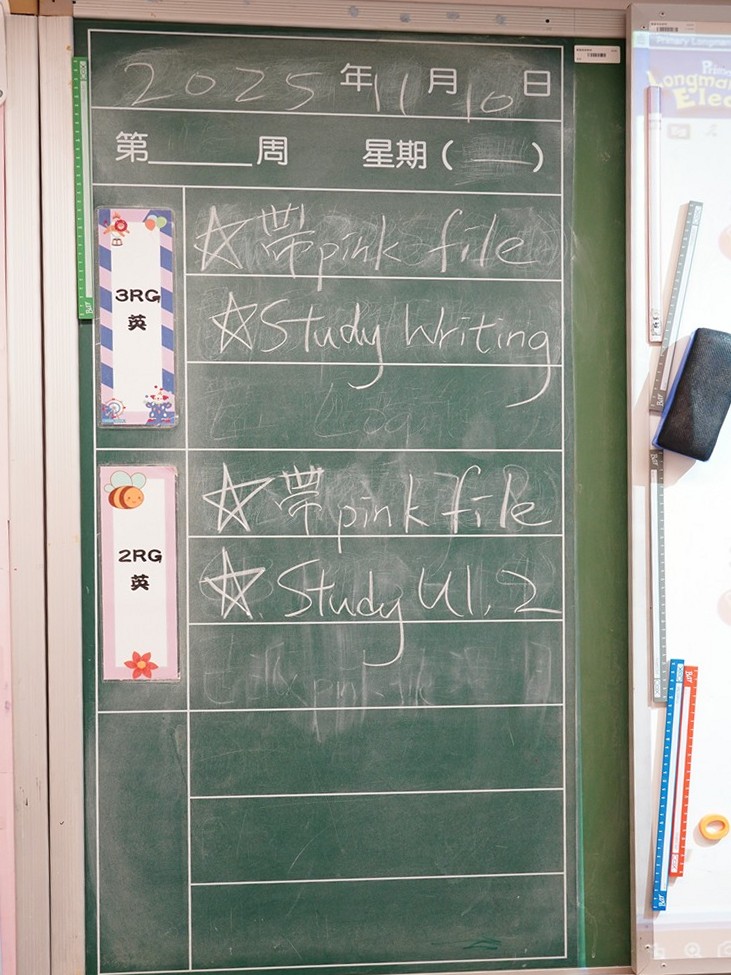 2025年11月10日
第______周 星期(一)
3RG
英
☆帶pink file
☆Study Writing
2RG
英
☆帶pink file
☆Study U1, 2
Longman
Elec